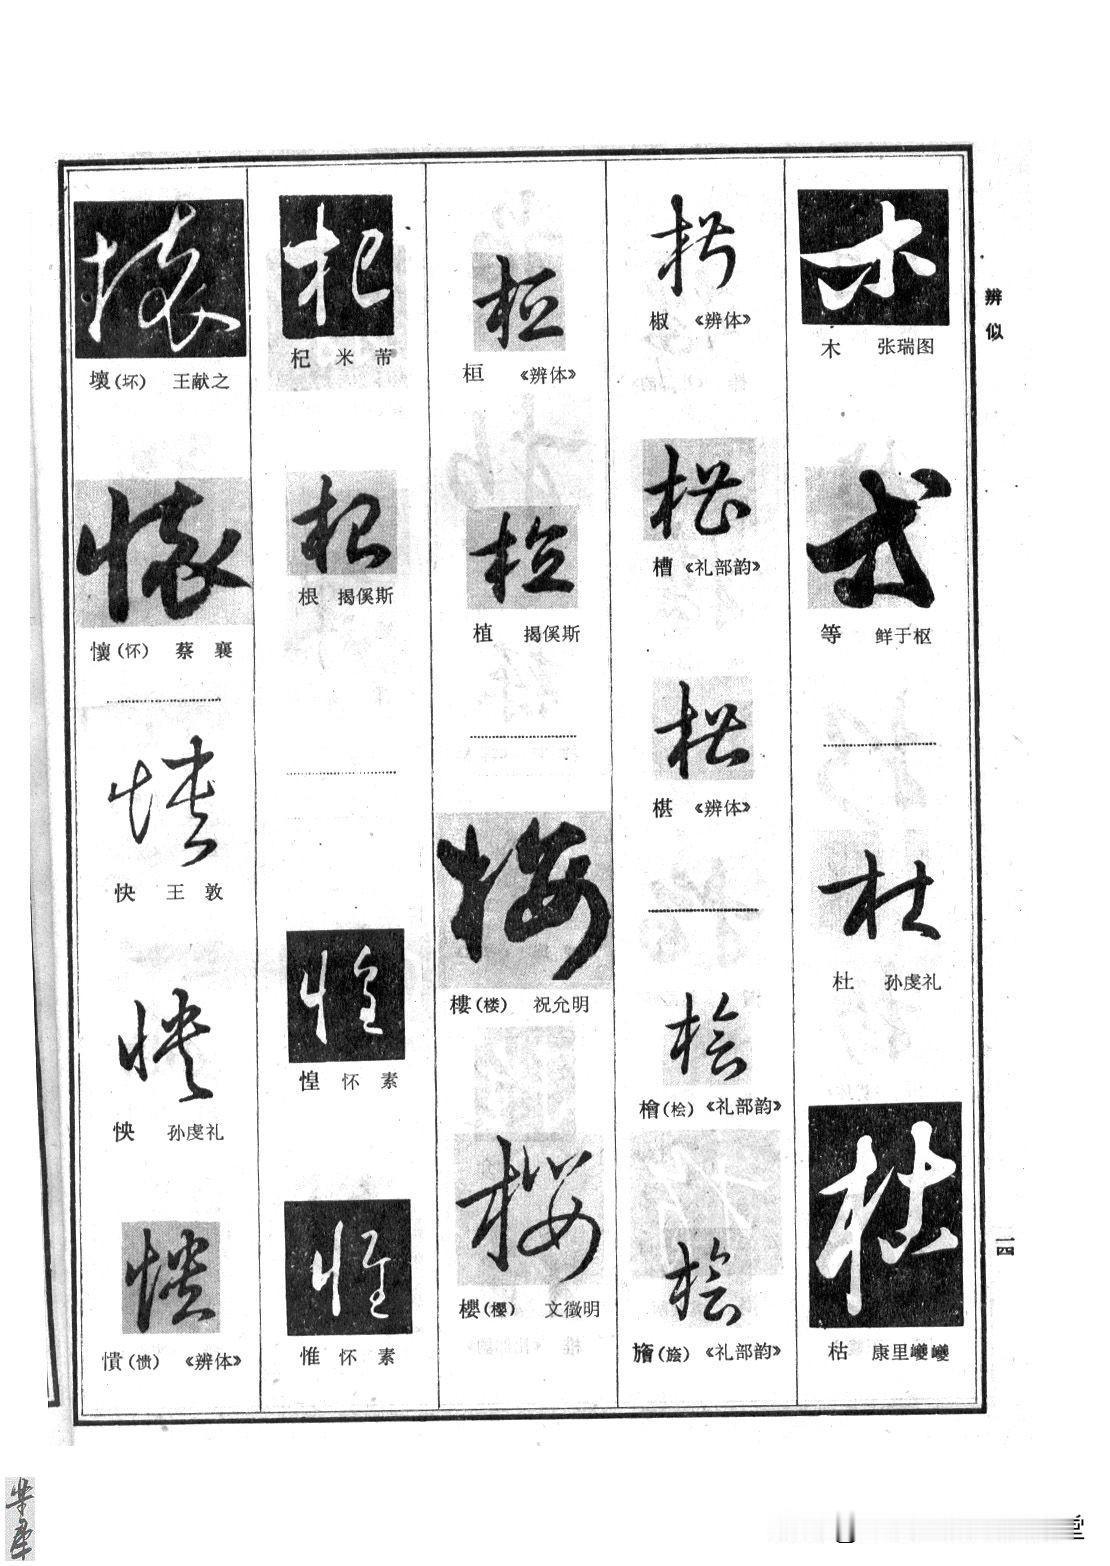 辨似
木 张瑞图
等 鲜于枢
杜 孙虔礼
枯 康里巎巎
椒 《辨体》
槽 《礼部韵》
椹 《辨体》
檜(桧) 《礼部韵》
旝(旝) 《礼部韵》
桓 《辨体》
植 揭傒斯
樓(楼) 祝允明
櫻(樱) 文徵明
杞 米芾
根 揭傒斯
惶 怀素
惟 怀素
壞(坏) 王献之
懷(怀) 蔡襄
快 王敦
怏 孙虔礼
憒(愦) 《辨体》
一四